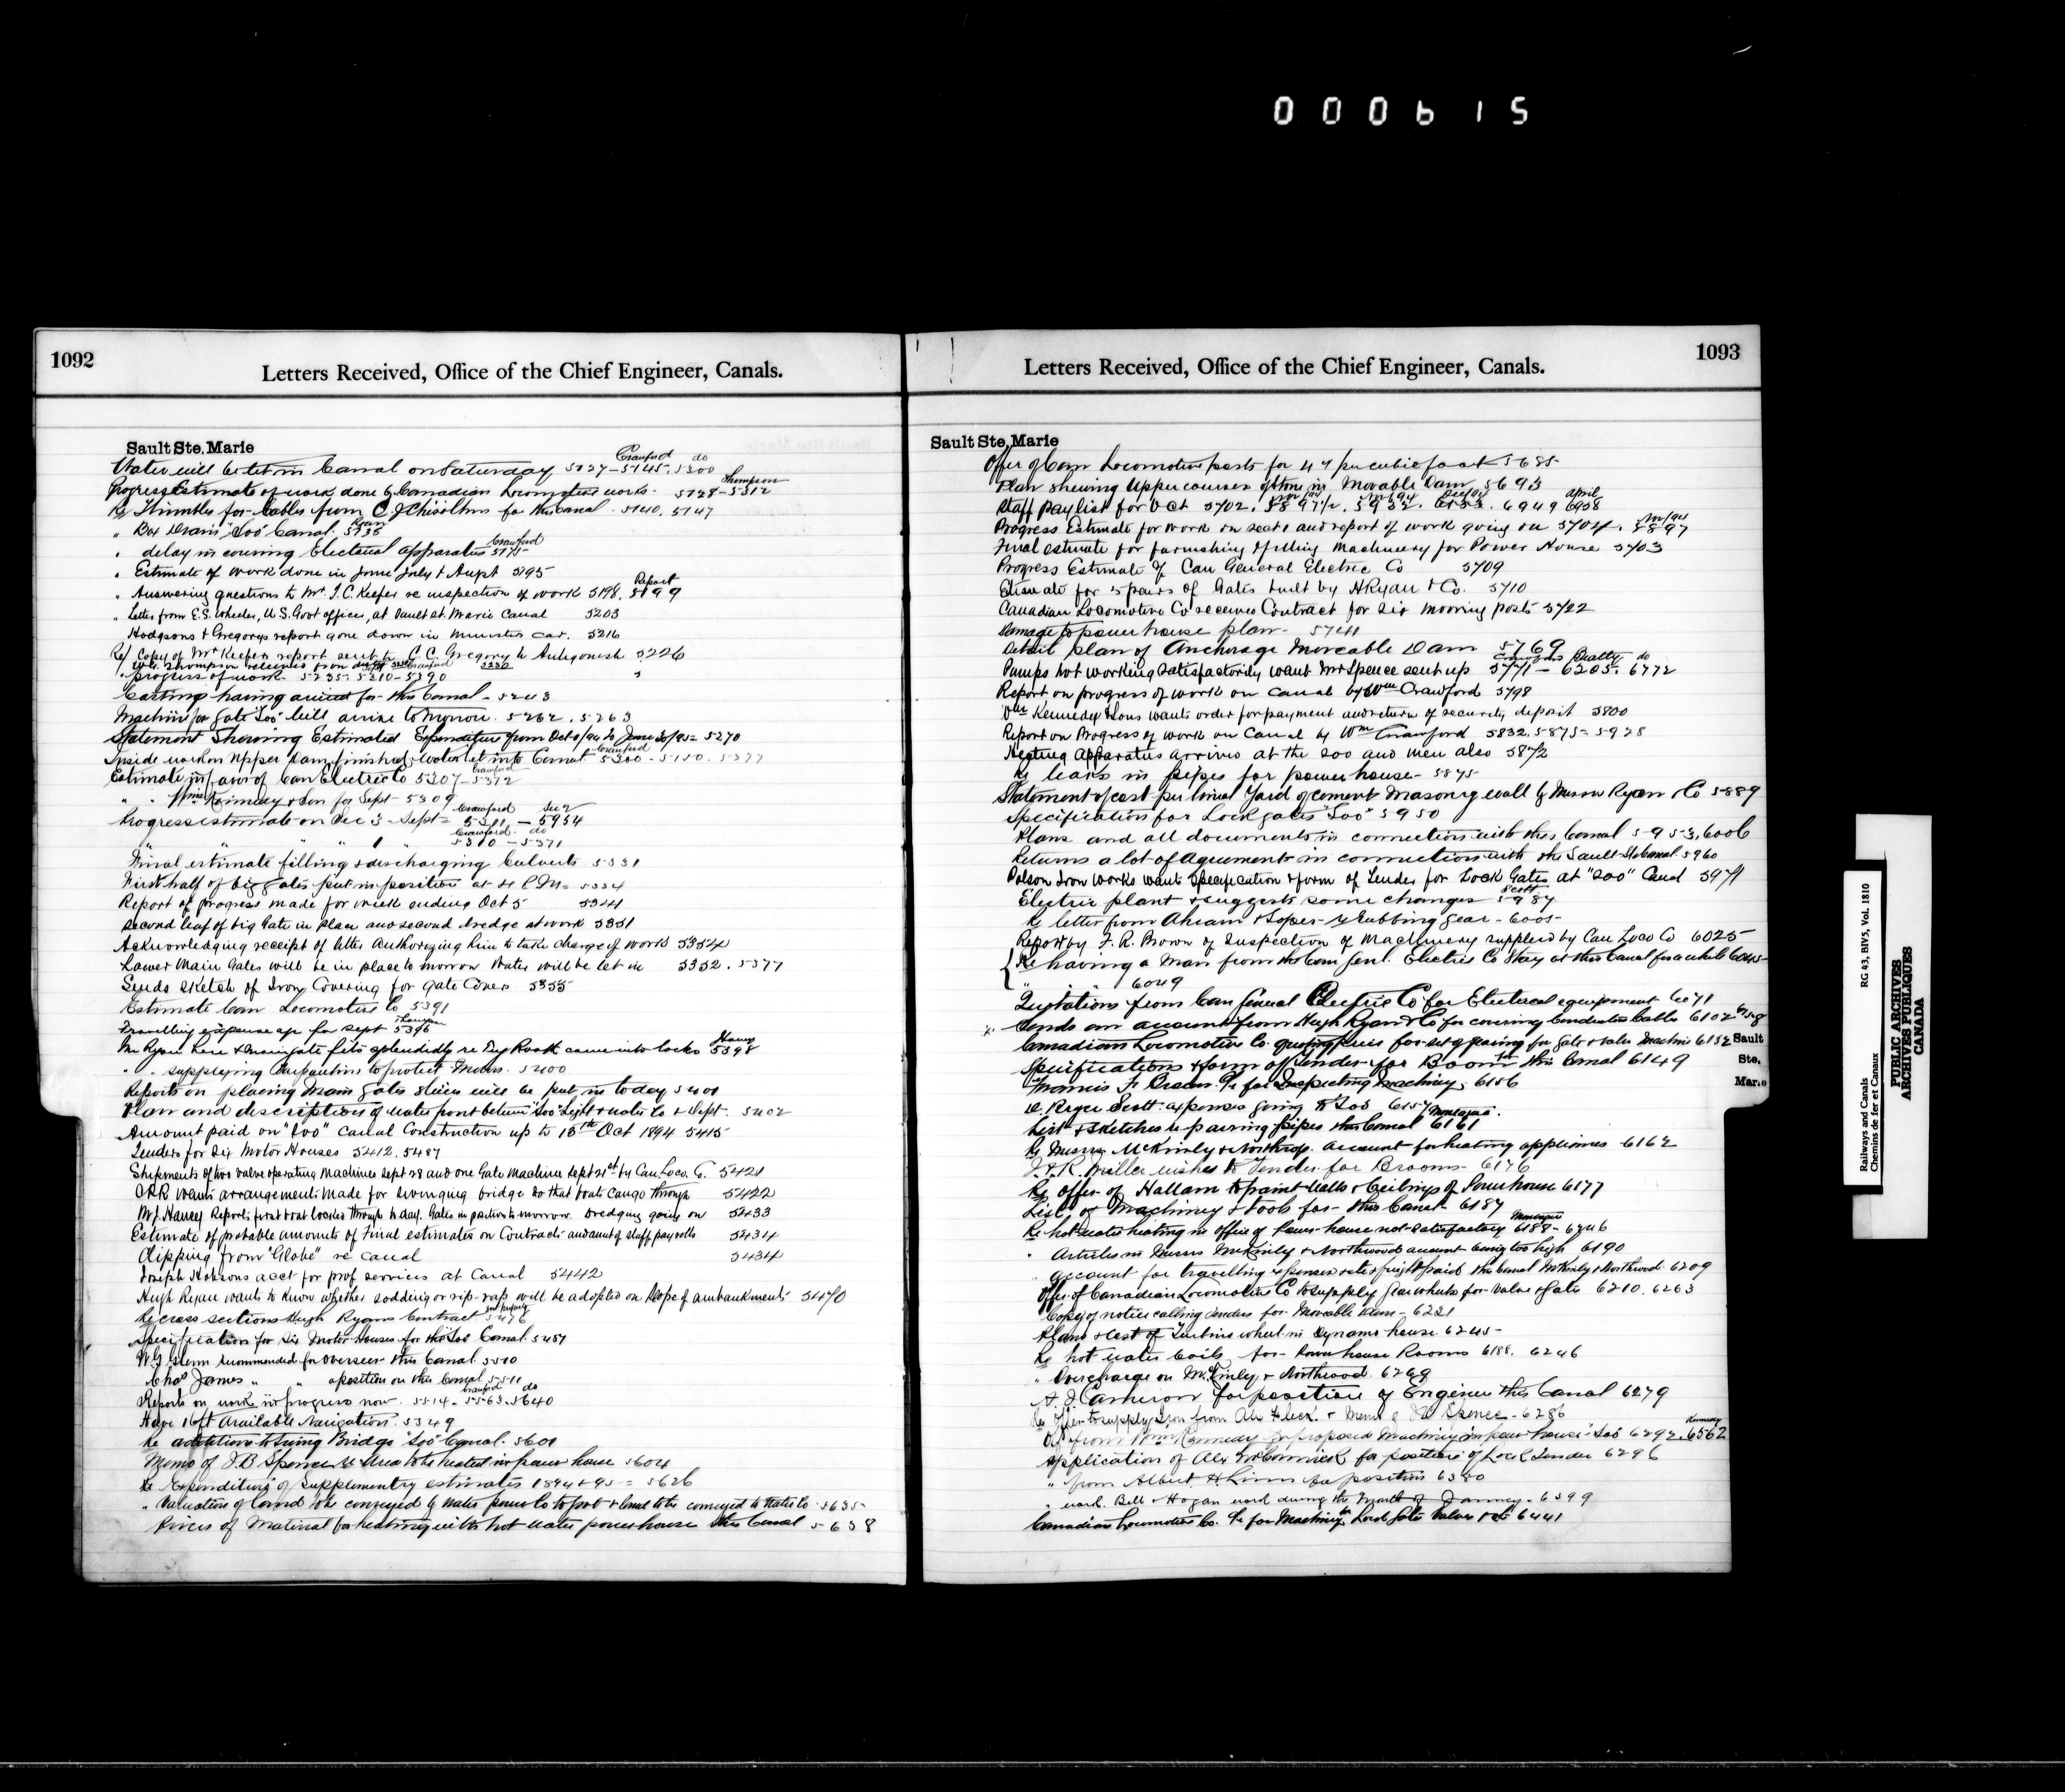 000615
1092
Letters Received, Office of the Chief Engineer, Canals.
Sault Ste. Marie
Crawford do
Water will be let in Canal on Saturday 5127-5145. 5300
Thompson
Progress Estimate of work done by Canadian Locomotive works. 5128-5312
Re Thimbles for Cables from C J Chisolm for this Canal. 5140. 5147
" Box Drain "Soo" Canal. 5136
Crawford
" delay in Electrical apparatus 5175
" Estimate of work done in June July & Augst 5195
Report
" Answering questions to Mr. T. C. Keefer re inspection of work 5198. 5199
" Letter from E. S. Wheeler, U. S. Govt officer, at Sault St. Marie Canal 5203
Hodgsons & Gregorys report gone down in Ministers car. 5216
Re/ Copy of Mr Keefers report sent to C. C. Gregory to Antigonish 5226
" progress of work. 5235. 5210-5390
Casting having arrived for this Canal. 5243
Machine for gate "Soo" will arrive tomorrow. 5262. 5263
Statement Shewing Estimated Expenditure from Oct 1/94 to June 30/95 = 5270
Crawford
Inside work on Upper Dam finished & water let into Canal 5300-5150. 5377
Crawford
Estimate in favor of Can Electric Co 5307-5372
" " Wm Kennedy & Son for Sept 5309
Crawford
Progress estimate on Sec 3 - Sept = 5311 - 5954
Crawford do
" " " 1 " 5310-5371
Final estimate filling & discharging Culverts 5331
First half of big gates put in position at 4 P.M. = 5334
Report of progress made for week ending Oct 5 5341
Second leaf of big Gate in place and second dredge at work 5351
Acknowledging receipt of letter authorizing him to take charge of work 5354
Lower Main Gates will be in place tomorrow Water will be let in 5352. 5377
Sends sketch of Iron Covering for Gate Cover 5355
Estimate Can Locomotive Co 5391
Travelling expense a/c for Sept 5396
Mr Ryan here & main gate fits splendidly re Dry Rock came into locks 5398
" " supplying Tarpaulins to protect Motors. 5400
Reports on placing Main gates will be put in today 5401
Plan and description of water front between "Soo" Light & Water Co & Dept. 5402
Amount paid on "Soo" Canal Construction up to 15th Oct 1894 5415
Tenders for Six Motor Houses 5412. 5487
Shipments of two valve operating Machines Sept 28 and one Gate Machine Sept 21st by Can. Loco. Co. 5421
CPR wants arrangements made for swinging bridge so that boats can go through 5422
M. J. Haney Reports first boat locked through to day. Gates in position tomorrow. Dredging going on 5433
Estimate of probable amounts of Final estimates on Contracts and amt of staff pay rolls 5434
Clipping from "Globe" re Canal 5434
Joseph Hobsons acct for prof services at Canal 5442
Hugh Ryan wants to know whether sodding or rip-rap will be adopted on slope of embankments 5470
Re cross sections Hugh Ryans Contract 5476
Specification for Six Motor Houses for the "Soo" Canal. 5487
W. G. Glenn recommended for Overseer this Canal 5510
Chas James " " a position on this Canal 5511
Crawford do
Reports on work in progress now. 5514-5563-5640
Have 16 ft Available Navigation. 5349
Re additions to Swing Bridge "Soo" Canal. 5601
Memo of J. B. Spence re Area to be heated in power house 5604
Re Expenditure of Supplementary estimates 1894 & 95 = 5626
" Valuation of land to be conveyed by Water power Co to Govt & land to be conveyed to Water Co 5635
Prices of Material for heating with hot water power house this Canal 5638
1093
Letters Received, Office of the Chief Engineer, Canals.
Sault Ste. Marie
Offer of Can Locomotive posts for 47 per cubic foot 5685
Plan shewing Upper courses of stone in Movable Dam 5693
April
Staff Pay list for Oct 5702. 5897½. 5932. 6133. 6949 6958
Progress Estimate for work on sect 1 and report of work going on 5704. 5897
Final estimate for furnishing & filling Machinery for Power House 5703
Progress Estimate of Can General Electric Co 5709
Estimate for 5 pairs of Gates built by H Ryan & Co. 5710
Canadian Locomotive Co receives Contract for Six mooring posts 5722
Damage to power house plan. 5741
Detail plan of Anchorage Moveable Dam 5769
Beatty do
Pumps not working Satisfactorily want Mr Spence sent up 5771 - 6205. 6772
Report on progress of work on Canal by Wm Crawford 5798
Wm Kennedy & Sons wants order for payment and return of security deposit 5800
Report on Progress of work on Canal by Wm Crawford 5832. 5875-5928
Heating Apparatus arrived at the Soo and men also 5872
Re leaks in pipes for power house - 5875
Statement of cost per lineal Yard of cement Masonry wall by Messrs Ryan & Co 5889
Specification for Lock gates "Soo" 5950
Plans and all documents in connection with this Canal 5953. 6006
Returns a lot of agreements in connection with the Sault Ste Canal 5960
Polson Iron Works wants Specification & form of Tender for Lock Gates at "Soo" Canal 5971
Scott
Electric plant & suggests some changes 5987
Re letter from Ahearn & Soper re rubbing gear - 6005
Report by F. R. Brown of Inspection of Machinery supplied by Can Loco Co 6025
Re having a Man from the Can Genl. Electric Co Stay at this Canal for a while 6045
" " 6049
Quotations from Can General Electric Co for Electrical equipment 6071
Sends an account from Hugh Ryan & Co for covering Conductor Cables 6102
Canadian Locomotive Co. quoting price for set of gearing for gate & valve Machine 6132
Specifications & form of Tender for Boom for this Canal 6149
Francis F. Brown. a/c for Inspecting Machinery. 6156
D. Bryce Scott. expenses going to "Soo" 6157
List & Sketches re pairing pipes this Canal 6161
Re Messrs McKinley & Northrop. account for heating appliances 6162
J. & R. Miller wishes to Tender for Brooms 6176
Re Offer of Hallam to paint Walls & Ceilings of Powerhouse 6177
List of Machinery & tools for this Canal 6187
Re hot water heating in Office of Power house not Satisfactory 6188-6246
" Articles in Messrs McKinley & Northwood amount being too high 6190
account for travelling expenses & freight paid this Canal McKinly & Northwood 6209
Offer of Canadian Locomotive Co to supply Gear wheels for Valve & Gate 6210. 6263
Copy of notice calling Tenders for Movable Dam 6231
Plans & Cost of Turbine wheel in Dynamo house 6245
Re hot water Coils for Power house Rooms 6188. 6246
" Overcharge on McKinly & Northwood. 6268
A. J. Cameron for position of Engineer this Canal 6279
Re Offer to supply Iron from Alx Fleck. & Memo of J B Spence. 6286
Kennedy
Offer from Wm Kennedy for proposed Machinery in power house "Soo" 6292. 6562
Application of Alex McCormick for position of Lock Tender 6296
" from Albert H. for position 6380
" work. Bell & Hogan work during the Month of January. 6399
Canadian Locomotive Co. a/c for Machinery Lock Gate Valves &c 6441
Sault
Ste.
Marie
Railways and Canals
Chemins de fer et Canaux
RG 43, BIV5, Vol. 1810
PUBLIC ARCHIVES
ARCHIVES PUBLIQUES
CANADA